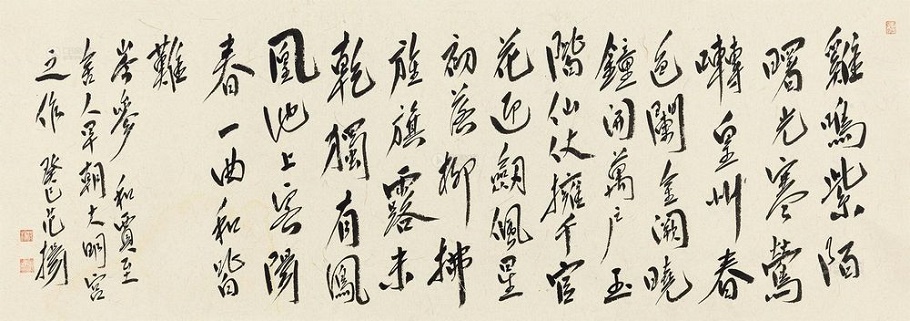 雞鳴紫陌
曙光寒鶯
囀皇州春
色闌金闕曉
鐘開萬户玉
階仙仗擁千官
花迎劍佩星
初落柳拂
旌旗露未
乾獨有鳳
凰池上客陽
春一曲和皆
難
岑參 和賈至
舍人早朝大明宮
之作 癸巳范揚